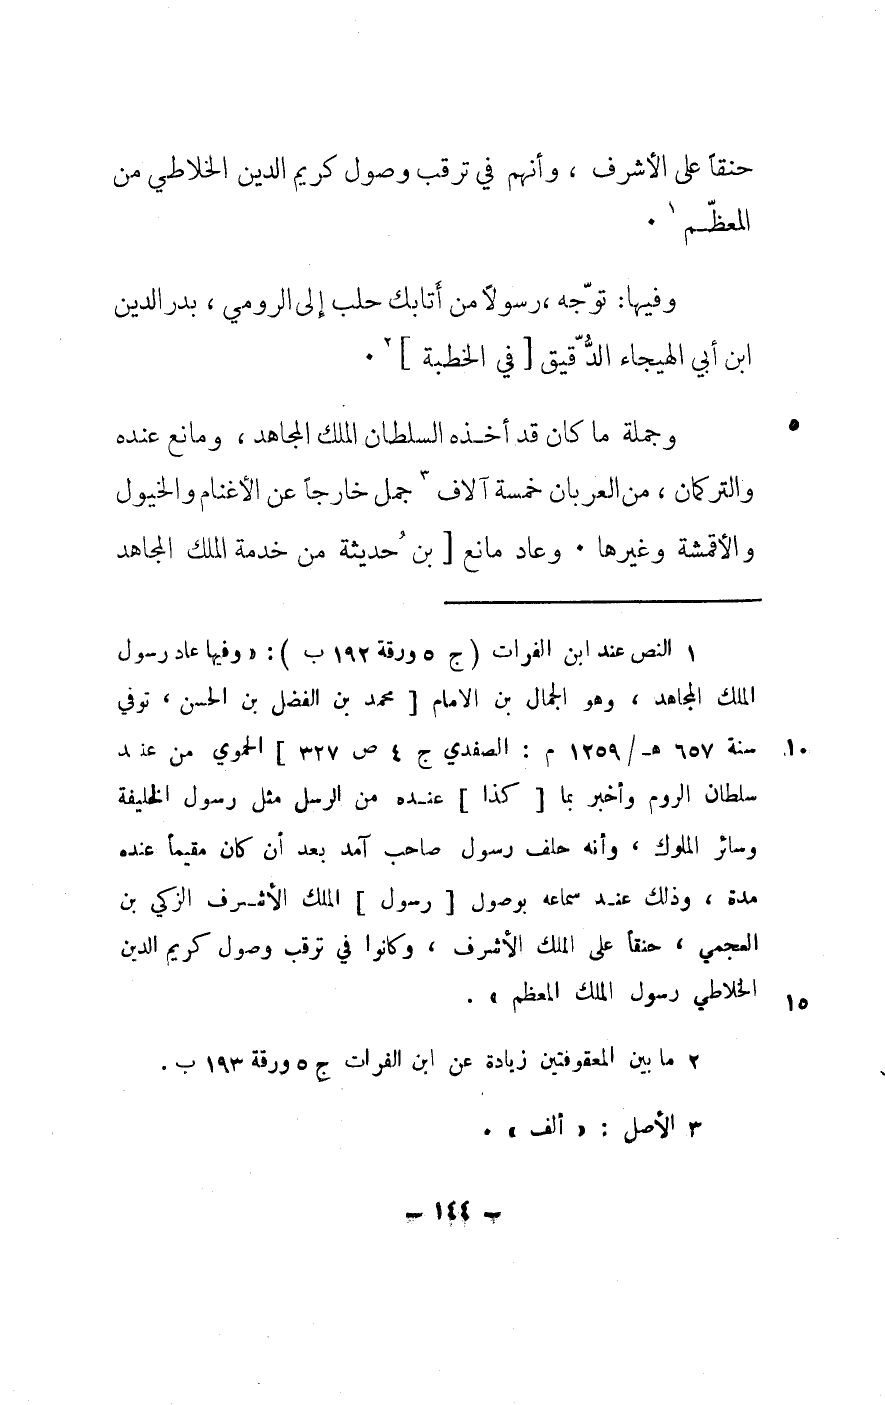 حنقاً على الأشرف ، وأنهم في ترقب وصول كريم الدين الخلاطي من
المعظّـم ١ ٠
وفيها: توّجه ،رسولاً من أتابك حلب إلى الرومي ، بدر الدين
ابن أبي الهيجاء الدُّقيق [ في الخطبة ] ٢ ٠
٥ وجملة ما كان قد أخـذه السلطان الملك المجاهد ، ومانع عنده
والتركمان ، من العربان خمسة آلاف ٣ جمل خارجاً عن الأغنام والخيول
والأقمشة وغيرها ٠ وعاد مانع [ بن حُديثة من خدمة الملك المجاهد
١ النص عند ابن الفرات ( ج ٥ ورقة ١٩٢ ب ) : « وفيها عاد رسول
الملك المجاهد ، وهو الجمال بن الامام [ محمد بن الفضل بن الحسن ، توفي
١٠ سنة ٦٥٧ هـ/ ١٢٥٩ م : الصفدي ج ٤ ص ٣٢٧ ] الحموي من عنـد
سلطان الروم وأخبر بما [ كذا ] عنـده من الرسل مثل رسول الخليفة
وسائر الملوك ، وأنه حلف رسول صاحب آمد بعد أن كان مقيماً عنده
مدة ، وذلك عنـد سماعه بوصول [ رسول ] الملك الأشـرف الزكي بن
العجمي ، حنقاً على الملك الأشرف ، وكانوا في ترقب وصول كريم الدين
١٥ الخلاطي رسول الملك المعظم » .
٢ ما بين المعقوفتين زيادة عن ابن الفرات ج ٥ ورقة ١٩٣ ب .
٣ الأصل : « ألف » ٠
– ١٤٤ –